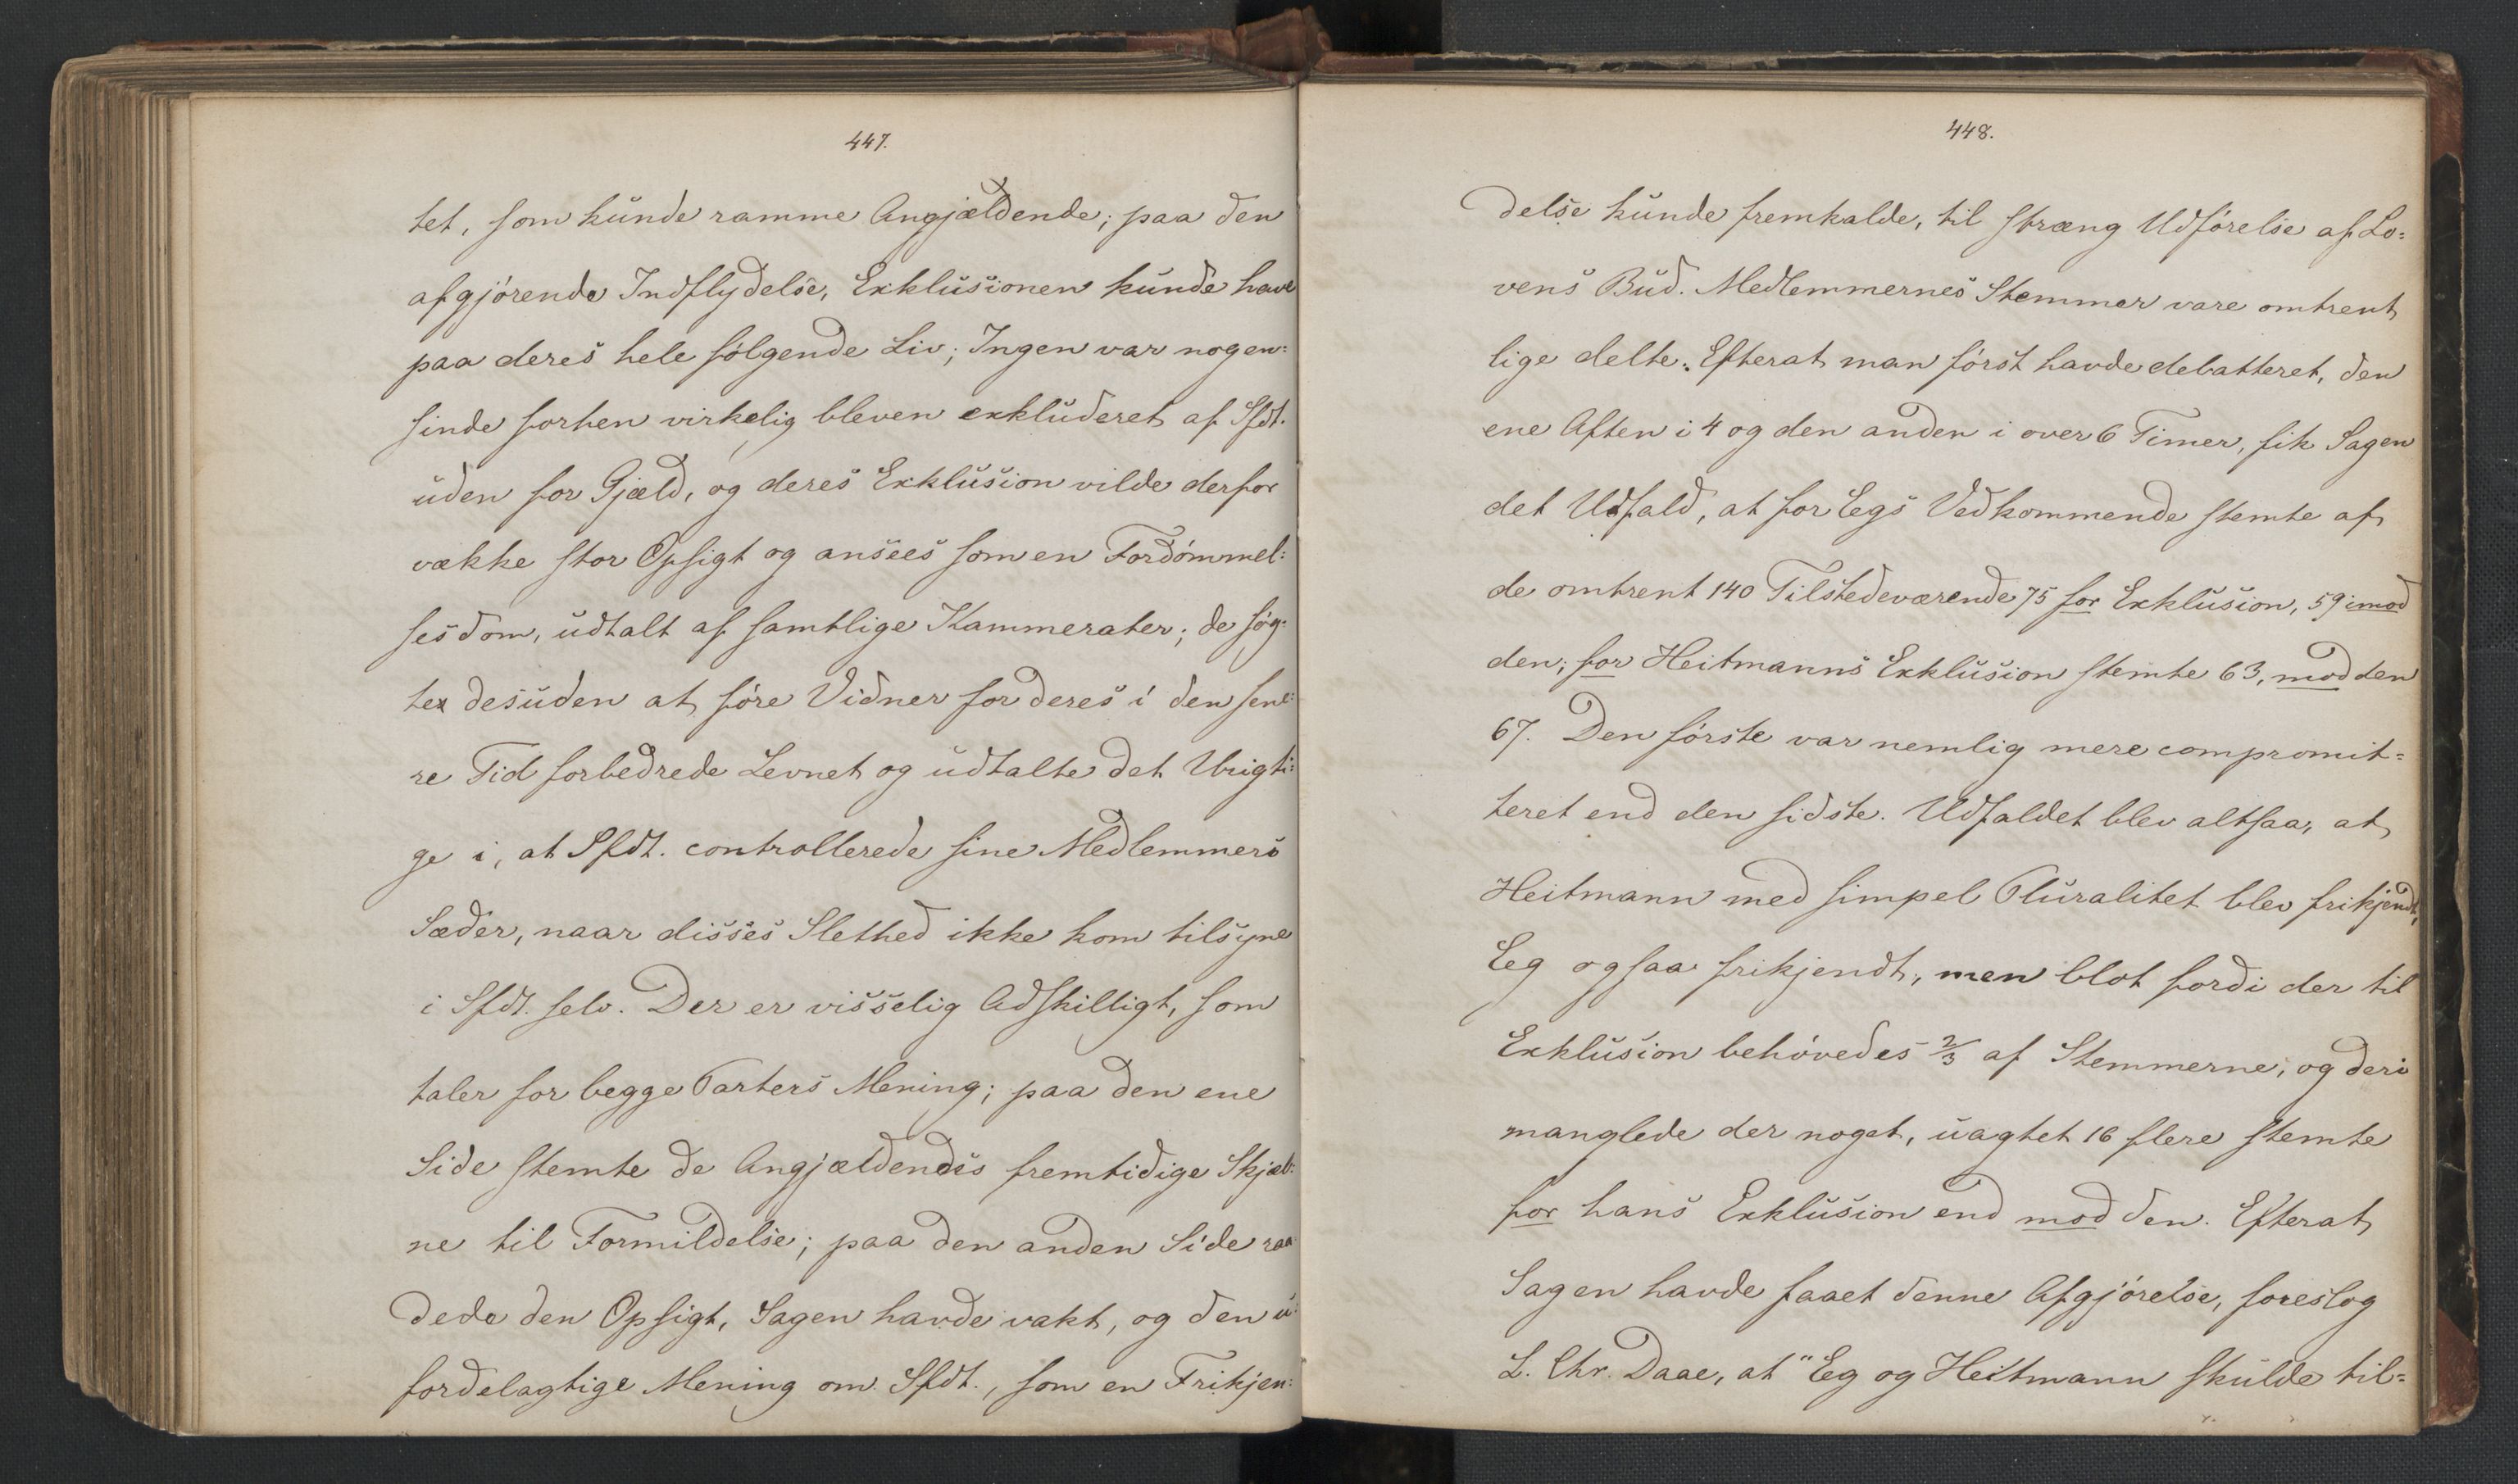 447.
tet, som kunde ramme Angjældende; paa den
afgjørende Indflydelse, Exklusionen kunde have
paa deres hele følgende Liv; Ingen var nogen-
sinde forhen virkelig bleven exkluderet af Sfdt.
uden for Gjæld, og deres Exklusion vilde derfor
vække stor Opsigt og ansees som en Fordømmel-
sesdom, udtalt af samtlige Kammerater; de søg-
te desuden at føre Vidner for deres i den sene-
re Tid forbedrede Levnet og udtalte det Urigti-
ge i, at Sfdt. controllerede sine Medlemmers
Sæder, naar disses Slethed ikke kom tilsyne
i Sfdt. selv. Der er visselig Adskilligt, som
taler for begge Parters Mening; paa den ene
Side stemte de Angjældendes fremtidige Skjæb-
ne til Formildelse; paa den anden Side raa
dede den Opsigt, Sagen havde vakt, og den u-
fordelagtige Mening om Sfdt., som en Frikjen-
448.
delse kunde fremkalde, til stræng Udførelse af Lo-
vens Bud. Medlemmernes Stemmer vare omtrent
lige delte. Efterat man først havde debatteret, den
ene Aften i 4 og den anden i over 6 Timer, fik Sagen
det Udfald, at for Egs Vedkommende stemte af
de omtrent 140 Tilstedeværende 75 for Exklusion, 59 imod
den; for Heitmanns Exklusion stemte 63, mod den
67. Den første var nemlig mere compromit-
teret end den sidste. Udfaldet blev altsaa, at
Heitmann med simpel Pluralitet blev frikjendt,
Eg ogsaa frikjendt, men blot fordi der til
Exklusion behøvedes 2/3 af Stemmerne, og deri
manglede der noget, uagtet 16 flere stemte
for hans Exklusion end mod den. Efterat
Sagen havde faaet denne Afgjørelse, foreslog
L. Chr. Daae, at "Eg og Heitmann skulde til-